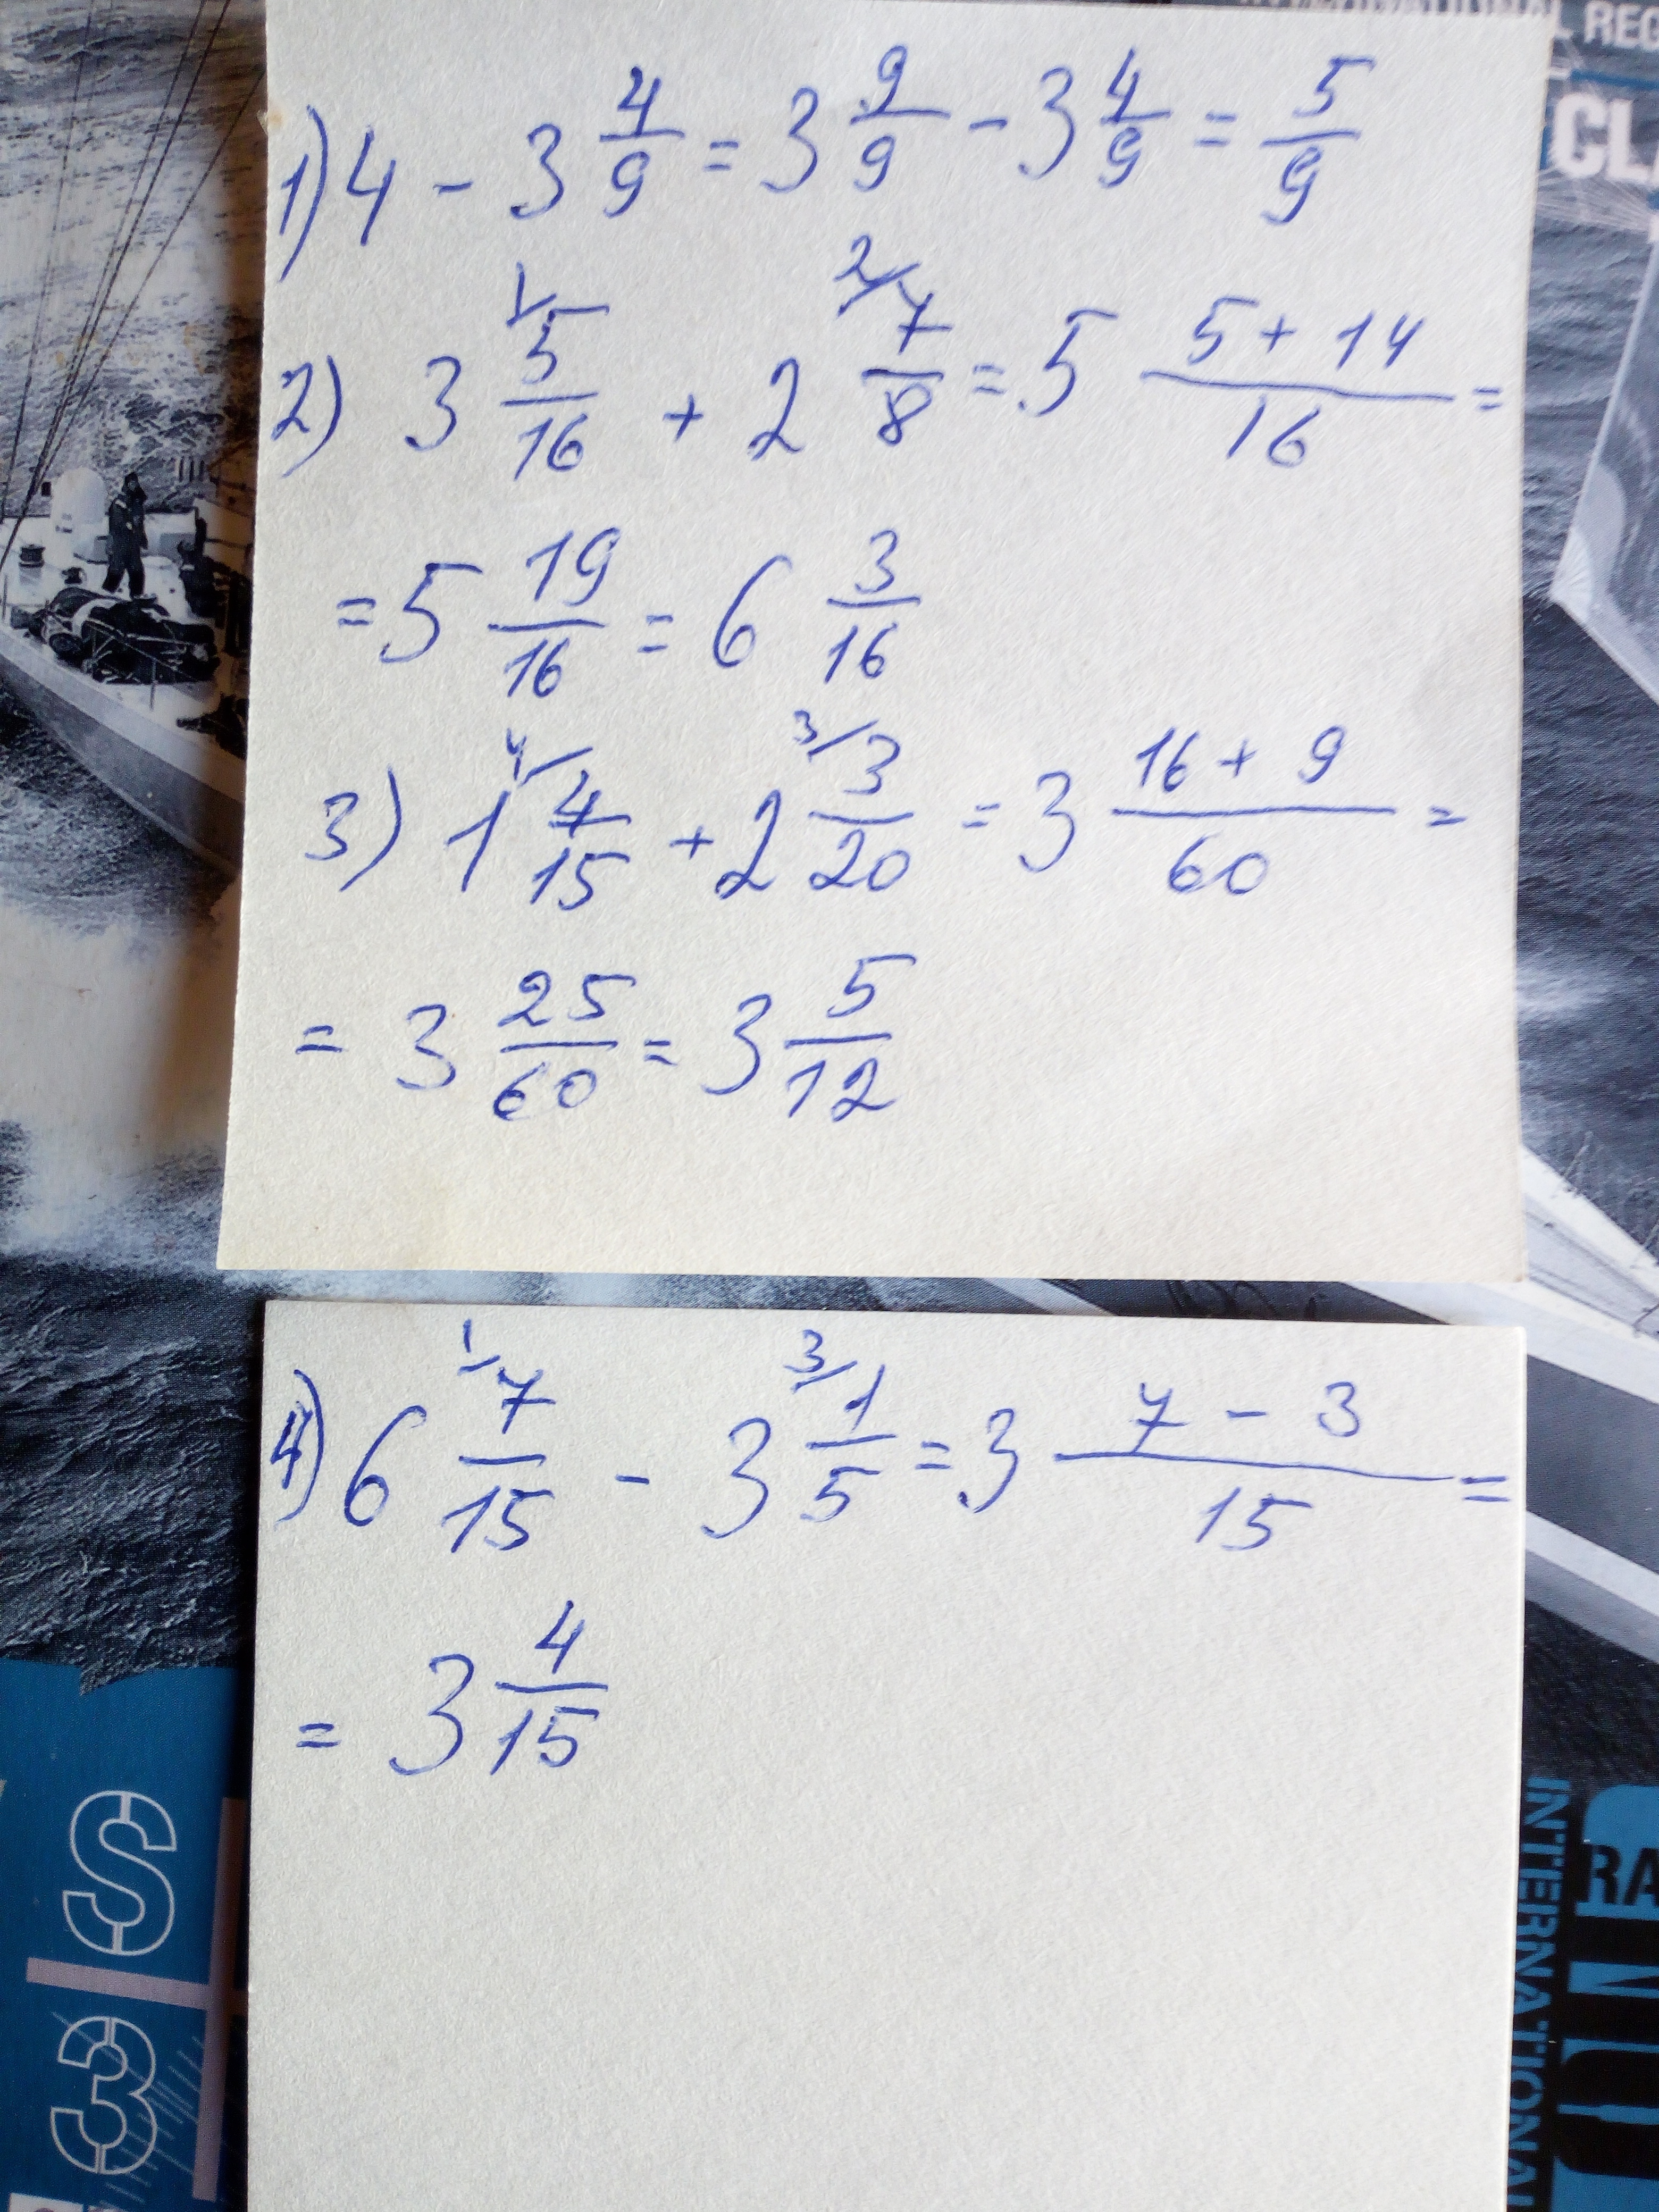 INTERNATIONAL REG
CLA
1) 4 - 3 4/9 = 3 9/9 - 3 4/9 = 5/9
2) 3 5/16 (1/) + 2 7/8 (2/) = 5 (5 + 14)/16 =
= 5 19/16 = 6 3/16
3) 1 4/15 (4/) + 2 3/20 (3/) = 3 (16 + 9)/60 =
= 3 25/60 = 3 5/12
4) 6 7/15 (1/) - 3 1/5 (3/) = 3 (7 - 3)/15 =
= 3 4/15
S
3
INTERNATIONAL
RA